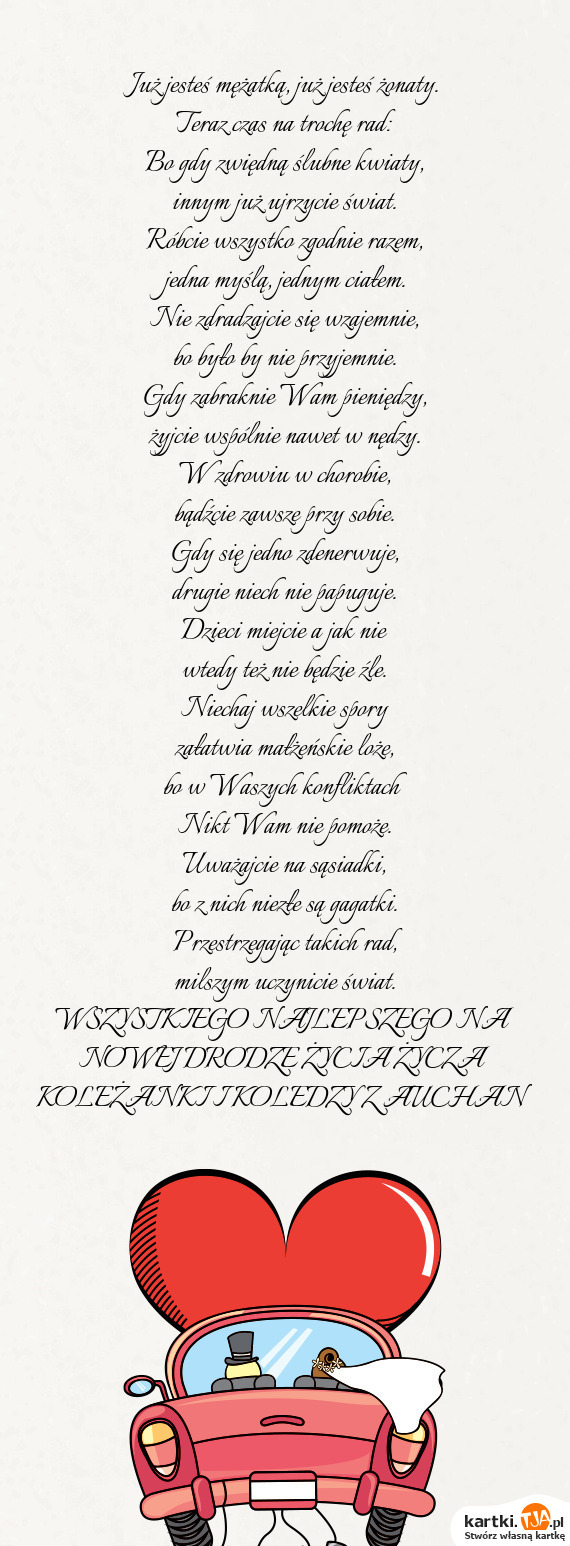 Już jesteś mężatką, już jesteś żonaty.
Teraz czas na trochę rad:
Bo gdy zwiędną ślubne kwiaty,
innym już ujrzycie świat.
Róbcie wszystko zgodnie razem,
jedna myślą, jednym ciałem.
Nie zdradzajcie się wzajemnie,
bo było by nie przyjemnie.
Gdy zabraknie Wam pieniędzy,
żyjcie wspólnie nawet w nędzy.
W zdrowiu w chorobie,
bądźcie zawsze przy sobie.
Gdy się jedno zdenerwuje,
drugie niech nie papuguje.
Dzieci miejcie a jak nie
wtedy też nie będzie źle.
Niechaj wszelkie spory
załatwia małżeńskie loże,
bo w Waszych konfliktach
Nikt Wam nie pomoże.
Uważajcie na sąsiadki,
bo z nich niezłe są gagatki.
Przestrzegając takich rad,
milszym uczynicie świat.
WSZYSTKIEGO NAJLEPSZEGO NA
NOWEJ DRODZE ŻYCIA ŻYCZA
KOLEŻANKI I KOLEDZY Z AUCHAN
kartki.TJA.pl
Stwórz własną kartkę